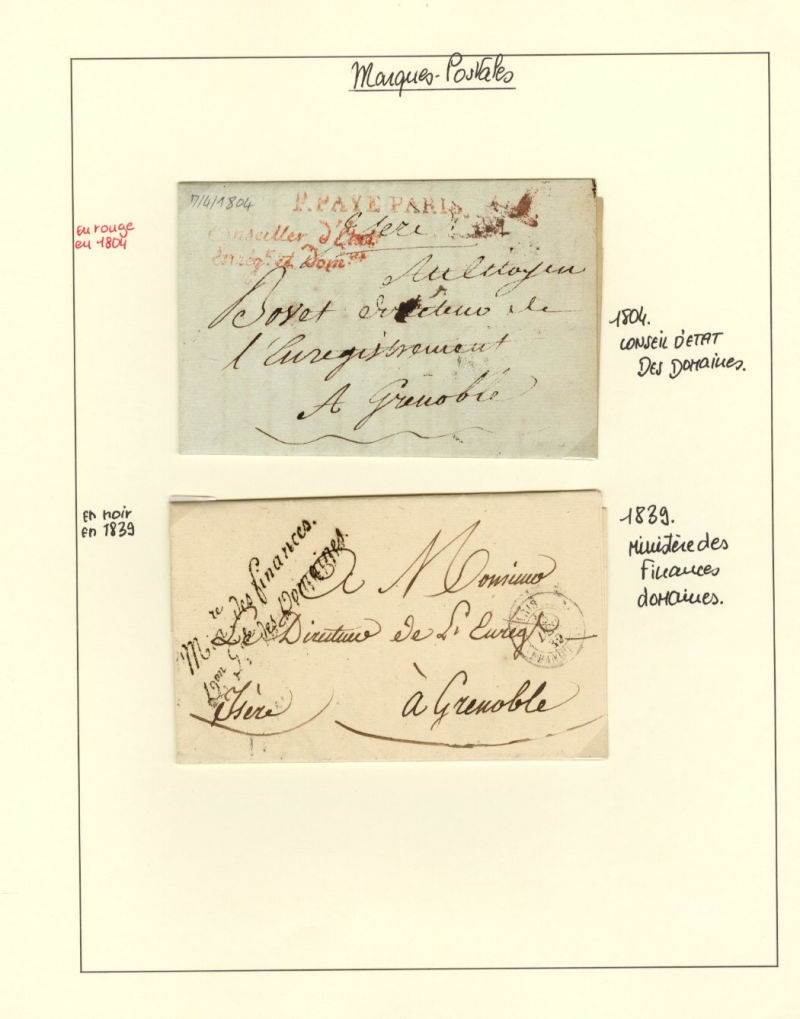 Marques-Postales
En rouge
en 1804
7/4/1804
P. PAYE PARIS
Conseiller d'Etat
Enrég.t et Dom.es
Isère
Au Citoyen
Bovet directeur de
l'Enregissrement
A Grenoble
1804.
CONSEIL D'ETAT
DES DOMAINES.
En noir
en 1839
M.re des finances.
des Domaines.
A Monsieur
Le Directeur de L'Enreg
Isère
à Grenoble
1839.
Ministère des
Finances
domaines.